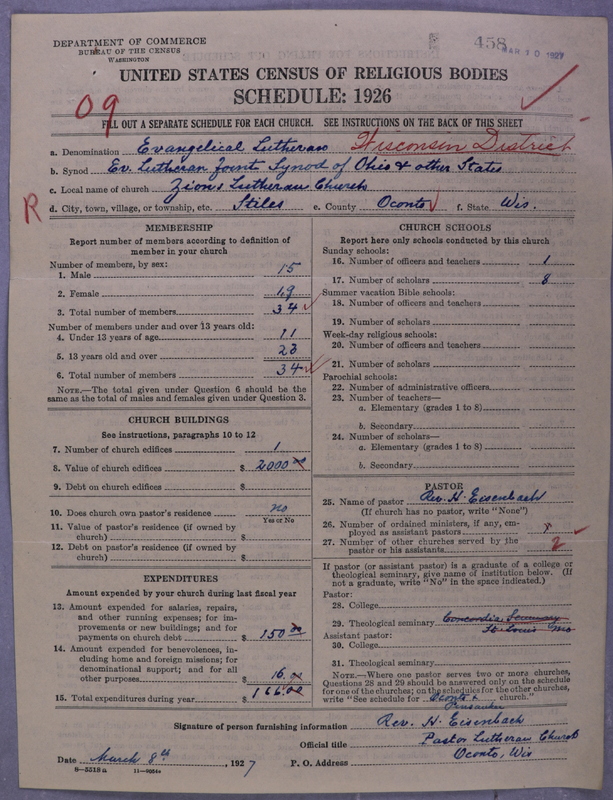 DEPARTMENT OF COMMERCE
BUREAU OF THE CENSUS
WASHINGTON
458
MAR 10 1927
UNITED STATES CENSUS OF RELIGIOUS BODIES
SCHEDULE: 1926
09
FILL OUT A SEPARATE SCHEDULE FOR EACH CHURCH. SEE INSTRUCTIONS ON THE BACK OF THIS SHEET
a. Denomination Evangelical Lutheran Wisconsin District
b. Synod Ev. Lutheran Joint Synod of Ohio & other States
c. Local name of church Zions Lutheran Church
R d. City, town, village, or township, etc. Stiles e. County Oconto f. State Wis.
MEMBERSHIP
Report number of members according to definition of
member in your church
Number of members, by sex:
1. Male 15
2. Female 19
3. Total number of members 34
Number of members under and over 13 years old:
4. Under 13 years of age 11
5. 13 years old and over 23
6. Total number of members 34
NOTE.—The total given under Question 6 should be the
same as the total of males and females given under Question 3.
CHURCH BUILDINGS
See instructions, paragraphs 10 to 12
7. Number of church edifices 1
8. Value of church edifices $ 2000 00
9. Debt on church edifices $
10. Does church own pastor's residence no
Yes or No
11. Value of pastor's residence (if owned by
church) $
12. Debt on pastor's residence (if owned by
church) $
EXPENDITURES
Amount expended by church during last fiscal year
13. Amount expended for salaries, repairs,
and other running expenses; for im-
provements or new buildings; and for
payments on church debt $ 150 00
14. Amount expended for benevolences, in-
cluding home and foreign missions; for
denominational support; and for all
other purposes $ 16.00
15. Total expenditures during year $ 166.00
CHURCH SCHOOLS
Report here only schools conducted by this church
Sunday schools:
16. Number of officers and teachers 1
17. Number of scholars 8
Summer vacation Bible schools:
18. Number of officers and teachers
19. Number of scholars
Week-day religious schools:
20. Number of officers and teachers
21. Number of scholars
Parochial schools:
22. Number of administrative officers
23. Number of teachers—
a. Elementary (grades 1 to 8)
b. Secondary
24. Number of scholars—
a. Elementary (grades 1 to 8)
b. Secondary
PASTOR
25. Name of pastor Rev. H. Eisenbach
(If church has no pastor, write "None")
26. Number of ordained ministers, if any, em-
ployed as assistant pastors
27. Number of other churches served by the
pastor or his assistants 2
If pastor (or assistant pastor) is a graduate of a college or
theological seminary, give name of institution below. (If
not a graduate, write "No" in the space indicated.)
Pastor:
28. College
29. Theological seminary Concordia Seminary
St. Louis Mo
Assistant pastor:
30. College
31. Theological seminary
NOTE.—Where one pastor serves two or more churches,
Questions 28 and 29 should be answered only on the schedule
for one of the churches; on the schedules for the other churches,
write "See schedule for Oconto & church."
Pensaukee
Signature of person furnishing information Rev. H. Eisenbach
Official title Pastor Lutheran Church
Date March 8th, 1927 P. O. Address Oconto, Wis
8—5518 a